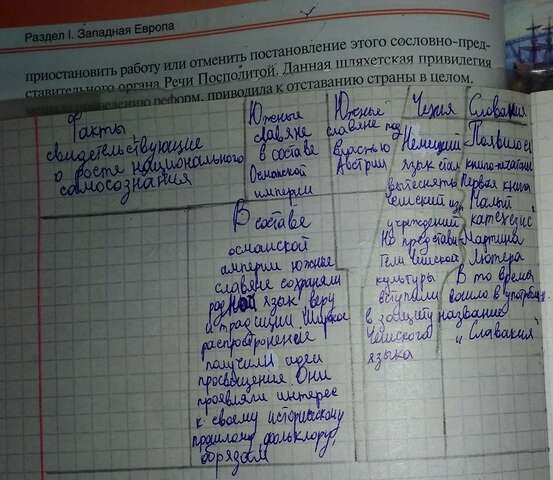 Раздел I. Западная Европа
приостановить работу или отменить постановление этого сословно-пред-
ставительного органа Речи Посполитой. Данная шляхетская привилегия
реформ, приводила к отставанию страны в целом.
Факты,
свидетельствующие
о росте национального
самосознания
Южные
славяне
в составе
Османской
империи
В составе
османской
империи южные
славяне сохраняли
родной язык веру
и традиции Широкое
распространение
получили идеи
просвещения. Они
проявляли интерес
к своему историческому
прошлому, фольклору,
обрядам
Южные
славяне под
властью
Австрии
Чехия
Немецкий
язык стал
вытеснять
чешский из
учреждений
Но представи
тели чешской
культуры
вступали
в защиту
Чешского
языка
Словакия
Появилось
книгопечатание
Первая книга
"Малый
катехезис"
Мартина
Лютера
В то время
вошло в употребл
название
"Словакия"